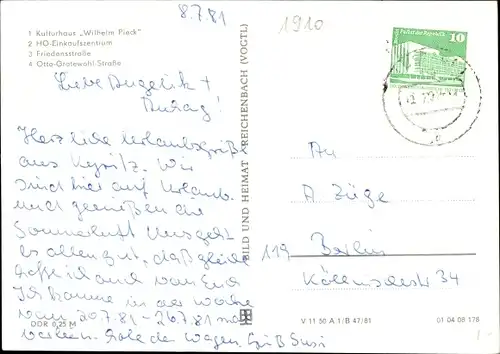 8.7.81
1910
1 Kulturhaus „Wilhelm Pieck"
2 HO-Einkaufszentrum
3 Friedensstraße
4 Otto-Grotewohl-Straße
Liebe Angelik +
Herzliche Urlaubsgrüße
aus Kyritz. Wir
sind hier auf Urlaub
und genießen die
Sommerluft. Uns geht
es allen gut,
ich und von Euch
Ich komme in der Woche
vom 20.7.81 - 26.7.81 nach
Berlin. Gruß Susi
DDR 0,25 M
BILD UND HEIMAT REICHENBACH (VOGTL)
Palast der Republik
10
DDR
An
A. Züge
119 Berlin
34
V 11 50 A 1/B 47/81
01 04 08 178